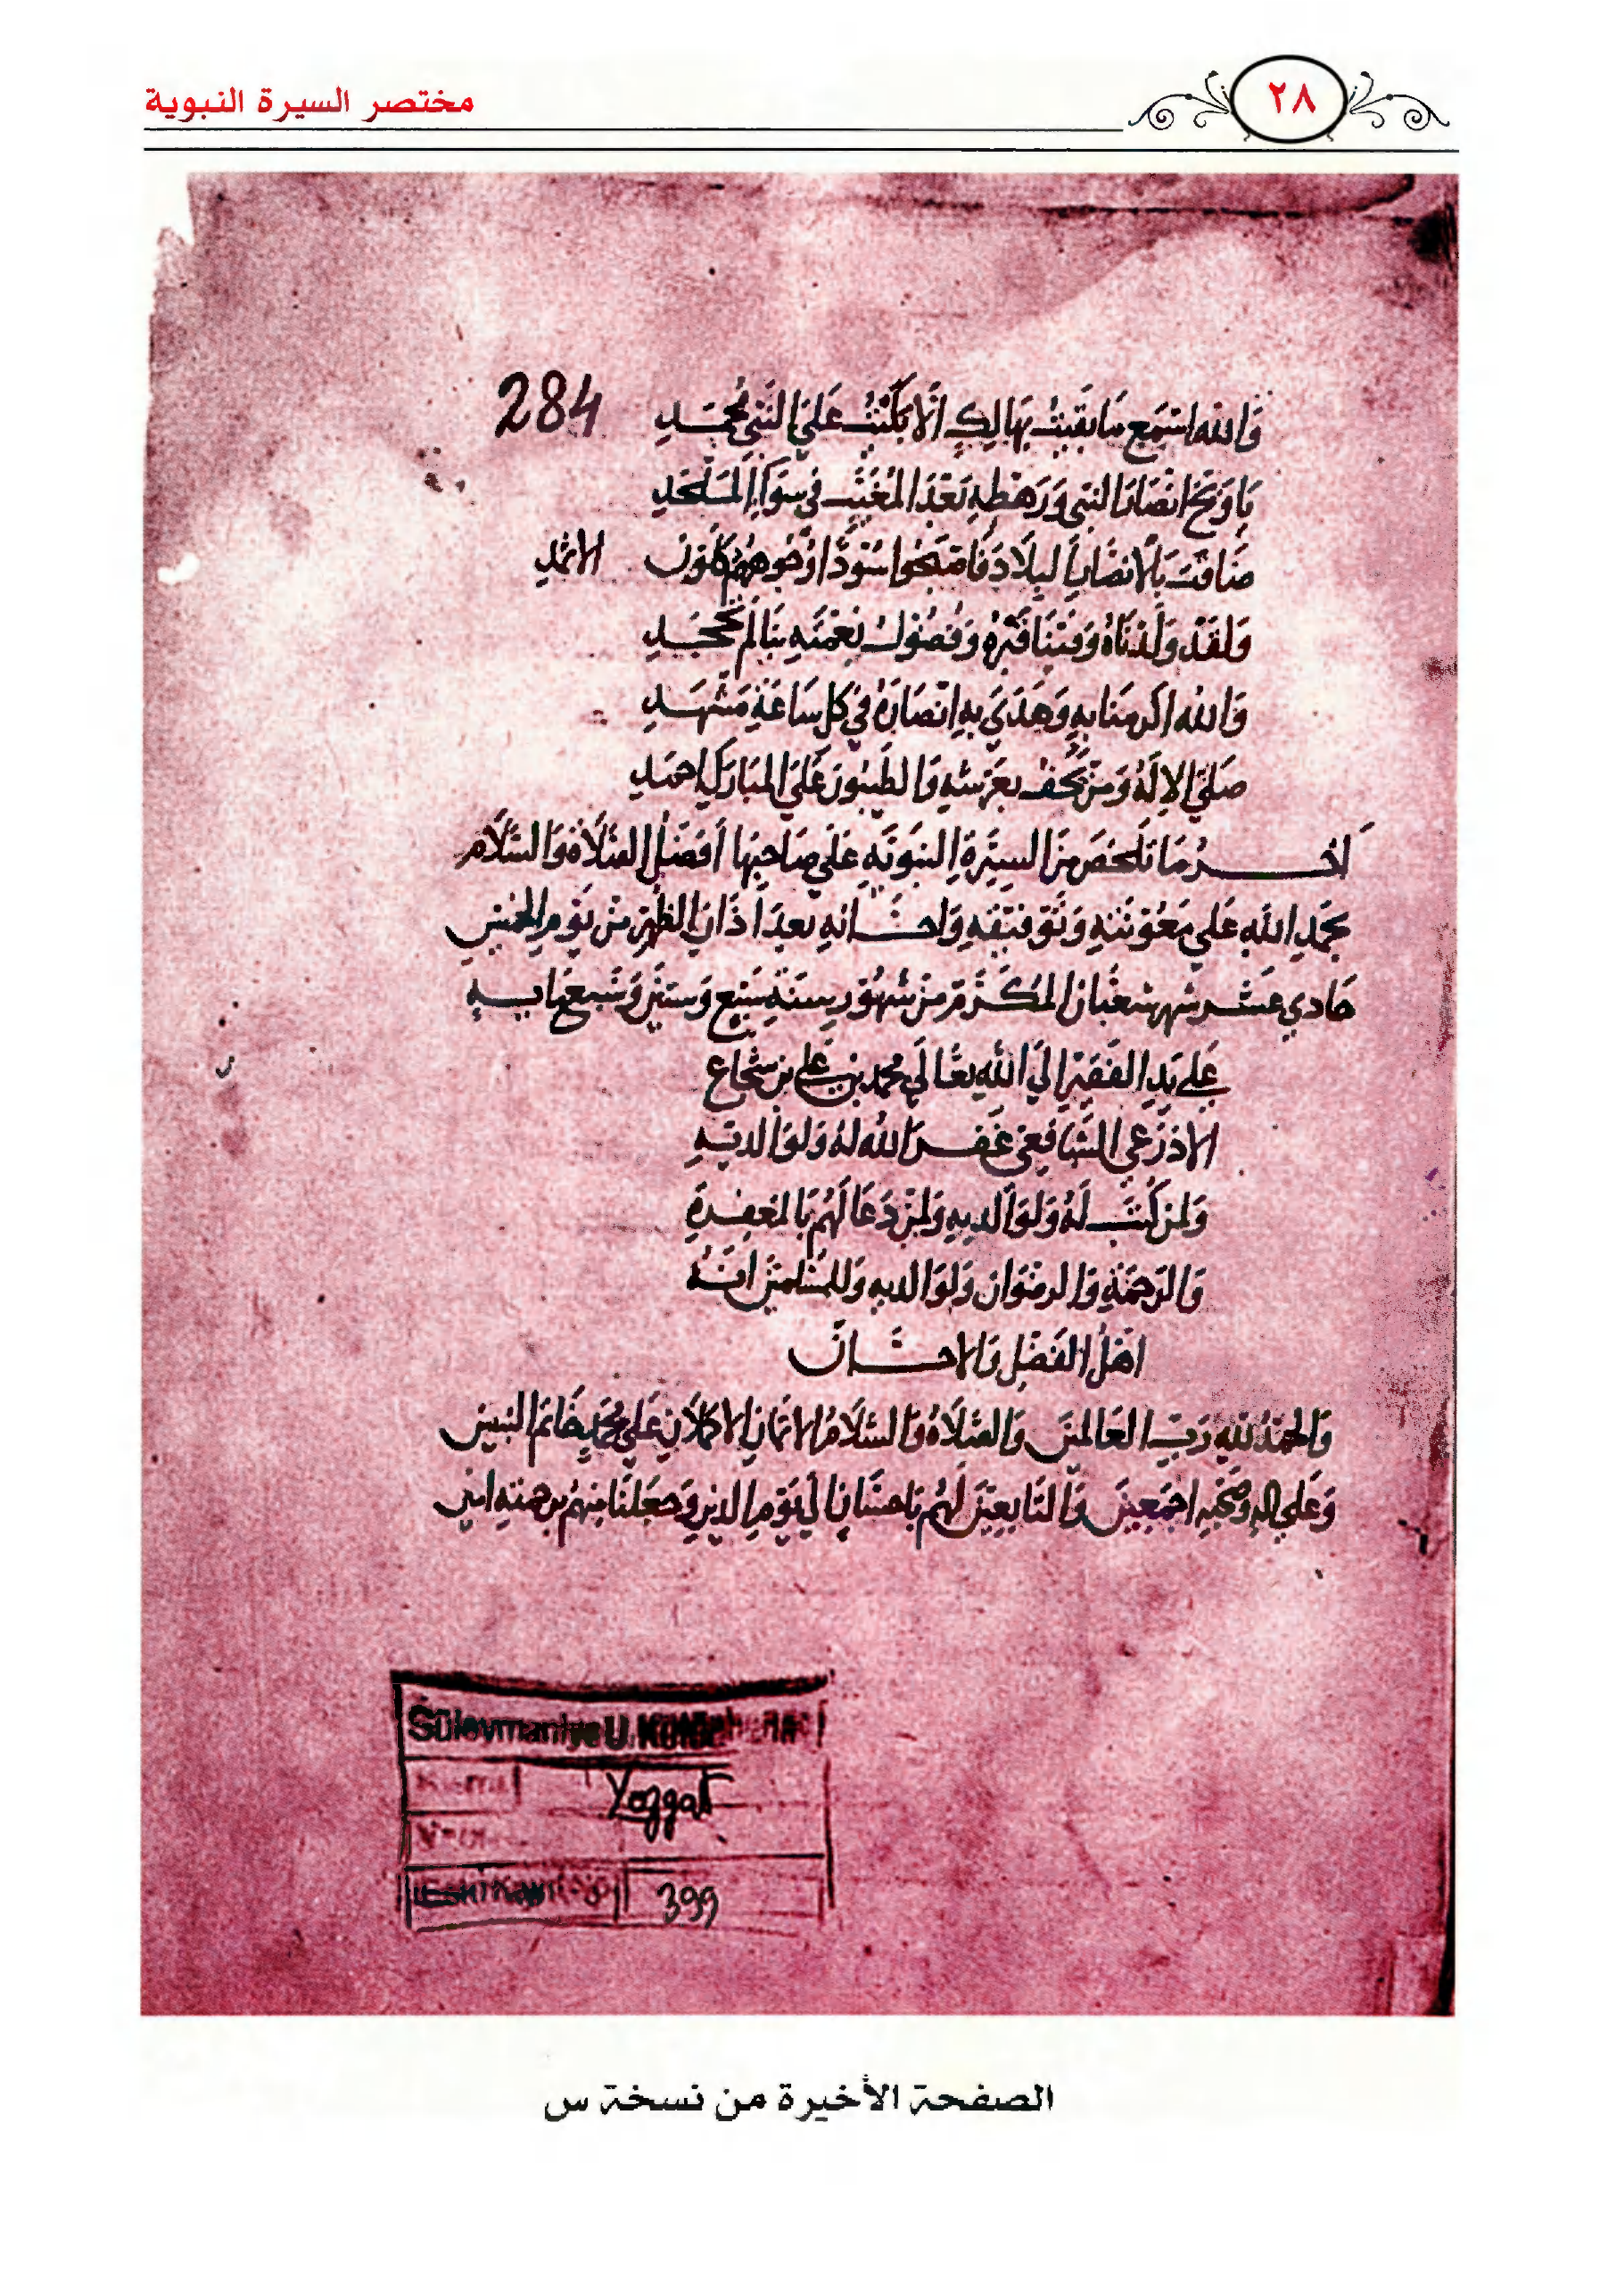 مختصر السيرة النبوية
٢٨
284
وَاللّه اسْمَع مَا بَقيتُ بهَالِكٍ الّا بَكَيْتُ عَلىَ النَبِي مُحَمّدِ
يَا وَيحَ انْصَار النبي وَرَهْطِهِ بَعْدَ المُغَيّبِ في سوَاءِ المَلْحَدِ
ضَاقَت بَالانصَارِ البلَادَ فَاصْبَحُوا سُوْدًا وُجُوههُمُ كَلَوْن الاثمدِ
وَلقَدْ وَلَدْنَاهُ وَفينَا قَبْرُهُ وَفضُولُ نِعْمَتِهِ بنَا لَمْ تُجْحَدِ
وَاللّه اكرمنَا بهِ وَهَدَى بهِ انْصَارَهُ في كل سَاعَةِ مَشْهَدِ
صَلىَّ الإلَهُ وَمَنْ يَحُفُّ بعَرْشهِ وَالطَيبُونَ عَلىَ المبَارَكِ احمَدِ
آخــر مَا تلَخصَ مِنَ السيْرَةِ النبَوَيَّهِ عَلى صَاحِبِهَا أفضَل الصَّلَاة وَالسَّلَام
بحَمدِ اللَّهِ عَلى مَعُوْنَتهِ وَتَوْفيْقهِ وَاحسَانهِ بعدَ أذَان الظهْر مِنْ يَوْمِ الخميس
حَادي عَشر شهر شعْبَان المُكَرَّم مِنْ شهُوْر سنَةِ سَبْع وَستينَ وَسَبعمَايهِ
عَلى يَدِ الفَقيْر الىَ اللّهِ تعَالىَ محمد بن عَلى بن شجَاع
الاذرَعي الشَّافِعي غفَر اللهُ لهُ وَلوَالديْهِ
وَلمَنْ كُتبَ لَهُ وَلوَالديهِ وَلمَنْ دَعَا لَهُم بَالمَغفرةِ
وَالرَحمَةِ وَالرضْوَان وَلوَالديه وَللمسْلمينَ انَّهُ
اهْلُ الفَضْل وَالاحسَان
وَالحَمْدُ للّهِ رَبّ العَالمينَ وَالصَّلَاةُ وَالسَّلَامُ الاتمانِ الاكمَلَانِ عَلى مُحَمدٍ خَاتم النبيين
وَعَلى الهِ وصَحبهِ اجمَعِينَ وَالتَابعِيْنَ لَهُم باحسَانٍ الى يَوْم الدين وَجعَلنَا منهُم برحمتهِ امين
Süleymaniye U. Kütüphanesi
Yozgat
399
الصفحة الأخيرة من نسخة س